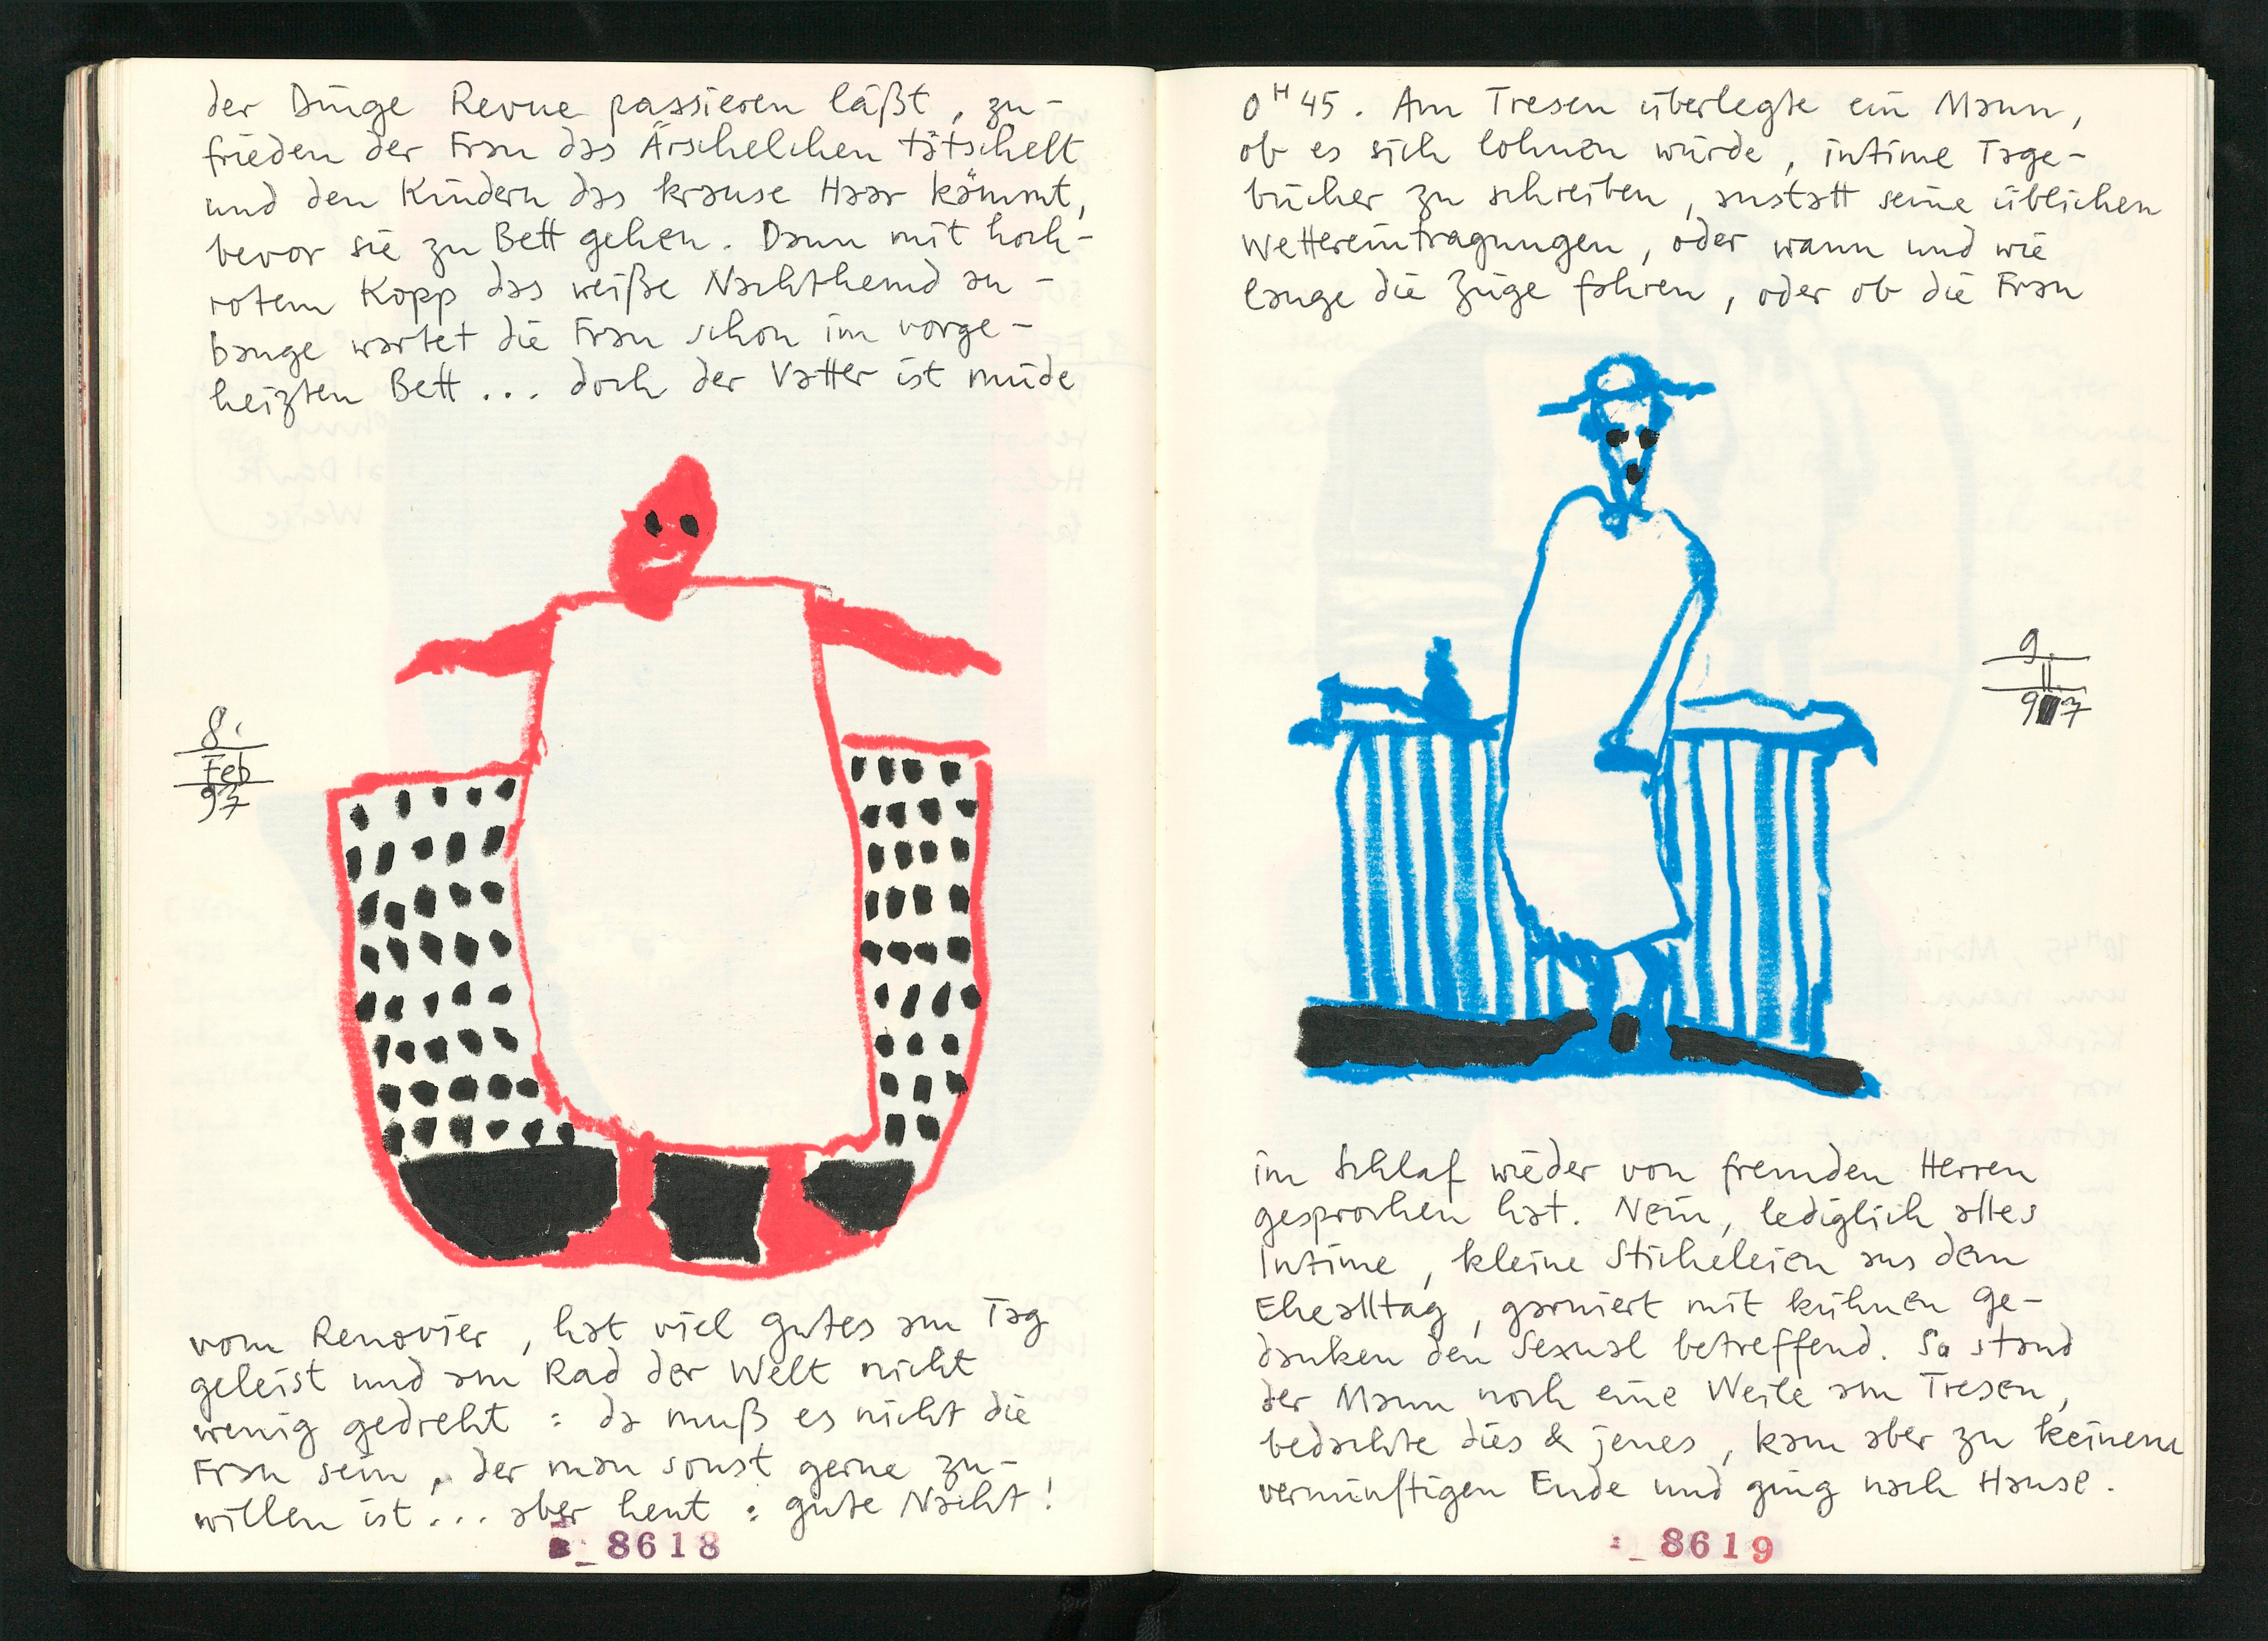 der Dinge Revue passieren läßt, zu-
frieden der Frau das Ärschelchen tätschelt
und den Kindern das krause Haar kämmt,
bevor sie zu Bett gehen. Dann mit hoch-
rotem Kopp das weiße Nachthemd an-
bange wartet die Frau schon im vorge-
heizten Bett... doch der Vatter ist müde
8.
Feb
97
vom Renovier, hat viel gutes am Tag
geleist und am Rad der Welt nicht
wenig gedreht : da muß es nicht die
Frau sein, der man sonst gerne zu-
willen ist... aber heut : gute Nacht!
8618
0H45. Am Tresen überlegte ein Mann,
ob es sich lohnen würde, intime Tage-
bücher zu schreiben, anstatt seine üblichen
Wettereintragungen, oder wann und wie
lange die Züge fahren, oder ob die Frau
9.
II.
97
im Schlaf wieder von fremden Herren
gesprochen hat. Nein, lediglich alles
Intime, kleine Sticheleien aus dem
Ehealltag, garniert mit kühnen Ge-
danken den Sexual betreffend. So stand
der Mann noch eine Weile am Tresen,
bedachte dies & jenes, kam aber zu keinem
vernünftigen Ende und ging nach Hause.
8619